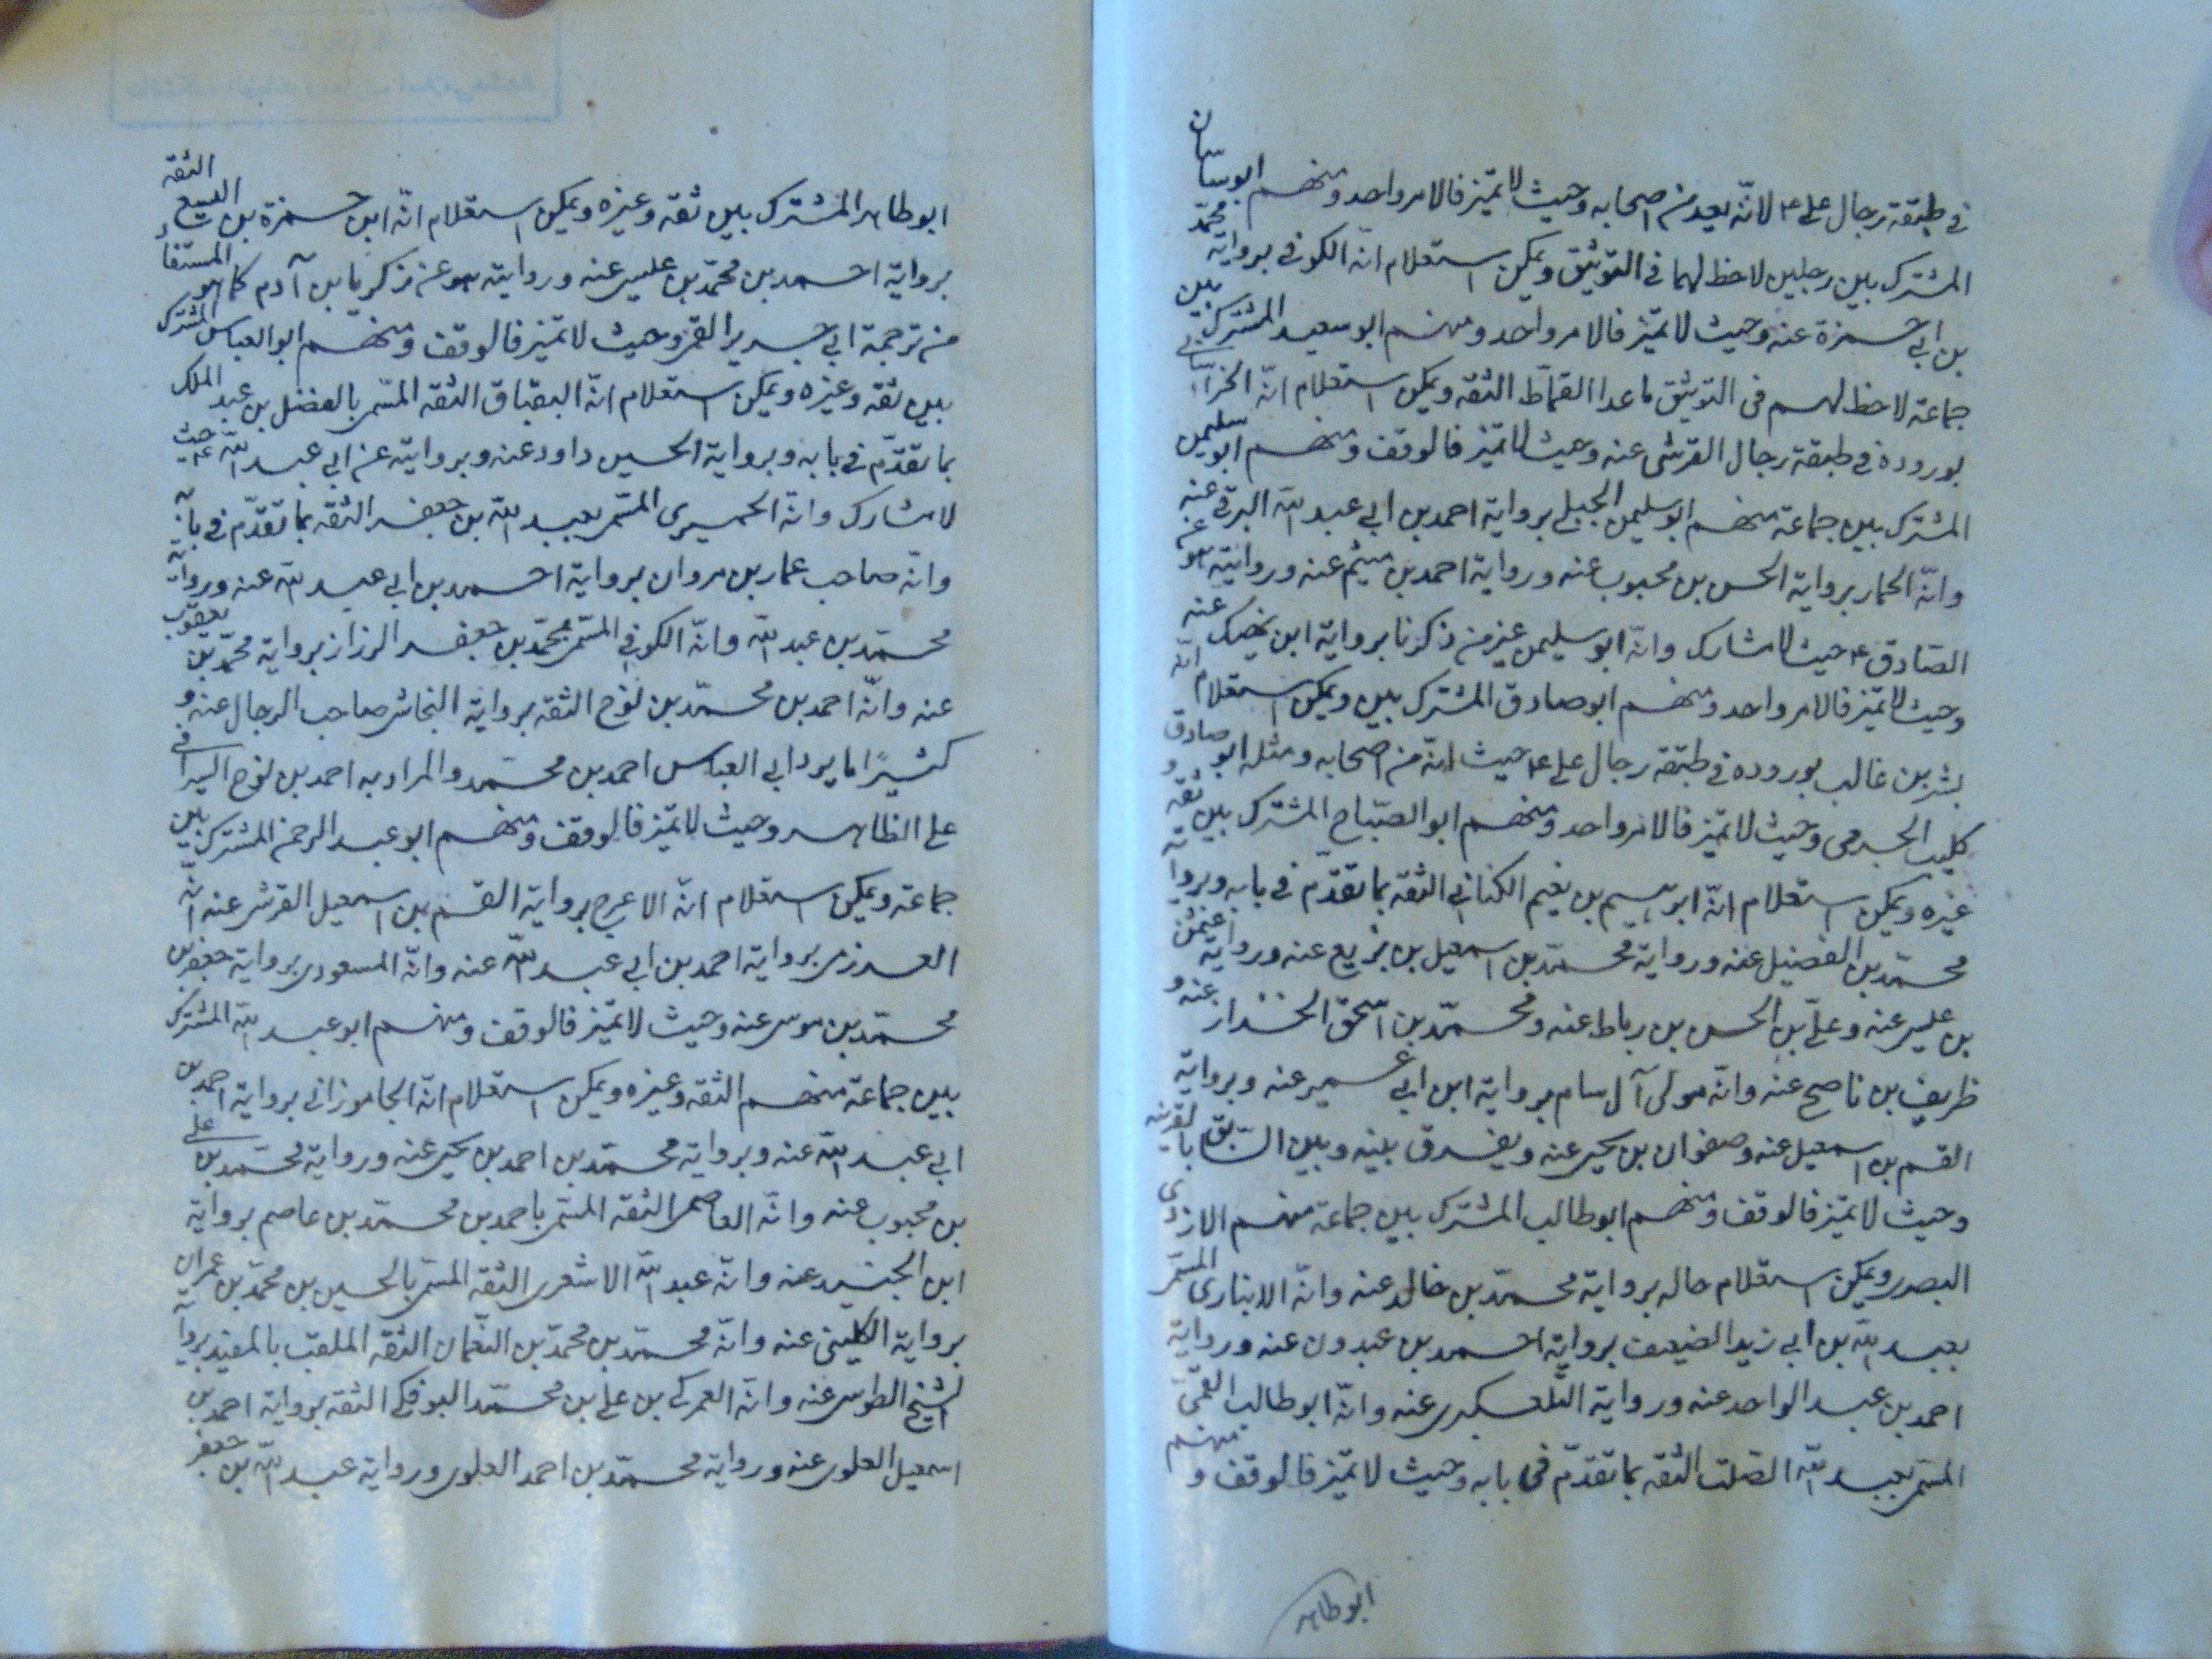 في طبقة رجال علي ع لانه يعد من اصحابه وحيث لا تميز فالامر واحد ومنهم ابوسنان
المشترك بين رجلين لاحظ لهما في التوثيق ويمكن استعلام انه الكوفي برواية محمد
بن ابي حمزة عنه وحيث لا تميز فالامر واحد ومنهم ابو سعيد المشترك بين
جماعة لاحظ لهم في التوثيق ماعدا القماط الثقة ويمكن استعلام انه الخراساني
بوروده في طبقة رجال القرشي عنه وحيث لا تميز فالوقف ومنهم ابو سليمن
المشترك بين جماعة منهم ابو سليمن الجبلي برواية احمد بن ابي عبد الله البرقي عنه
وانه الحمار برواية الحسن بن محبوب عنه ورواية احمد بن ميثم عنه وروايته هو عن
الصادق ع حيث لا مشارك وانه ابو سليمن غير من ذكرنا برواية ابن نهيك عنه
وحيث لا تميز فالامر واحد ومنهم ابو صادق المشترك بين ويمكن استعلام انه
بشر بن غالب بوروده في طبقة رجال علي ع حيث انه من اصحابه ومثله ابو صادق
كليب الجرمي وحيث لا تميز فالامر واحد ومنهم ابو الصباح المشترك بين ثقة و
غيره ويمكن استعلام انه ابرهيم بن نعيم الكناني الثقة بما تقدم في بابه وبرواية
محمد بن الفضيل عنه ورواية محمد بن اسمعيل بن بزيع عنه ورواية عثمن
بن عيسى عنه وعلي بن الحسن بن رباط عنه ومحمد بن اسحق الخزاز عنه و
ظريف بن ناصح عنه وانه مولى آل سام برواية ابن ابي عمير عنه وبرواية
القسم بن اسمعيل عنه وصفوان بن يحيى عنه ويفرق بينه وبين السابق بالقرينة
وحيث لا تميز فالوقف ومنهم ابو طالب المشترك بين جماعة منهم الازدي
البصري ويمكن استعلام حاله برواية محمد بن خالد عنه وانه الانباري المسمى
بعبيد الله بن ابي زيد الضعيف برواية احمد بن عبدون عنه ورواية
احمد بن عبد الواحد عنه ورواية التلعكبري عنه وانه ابو طالب القمي
المسمى بعبيد الله الصلت الثقة بما تقدم في بابه وحيث لا تميز فالوقف ومنهم
ابو طاهر
ابو طاهر المشترك بين ثقة وغيره ويمكن استعلام انه ابن حمزة بن اليسع الثقة
برواية احمد بن محمد بن عيسى عنه وروايته هو عن زكريا بن آدم كما هو المستفاد
من ترجمة ابي جرير القمي وحيث لا تميز فالوقف ومنهم ابو العباس المشترك
بين ثقة وغيره ويمكن استعلام انه البقباق الثقة المسمى بالفضل بن عبد الملك
بما تقدم في بابه وبرواية الحسين داود عنه وبروايته عن ابي عبد الله ع حيث
لا مشارك وانه الحميري المسمى بعبد الله بن جعفر الثقة بما تقدم في بابه
وانه صاحب عمار بن مروان برواية احمد بن ابي عبد الله عنه ورواية
محمد بن عبد الله وانه الكوفي المسمى محمد بن جعفر الرزاز برواية محمد بن يعقوب
عنه وانه احمد بن محمد بن نوح الثقة برواية النجاشي صاحب الرجال عنه و
كثيرا ما يرد ابي العباس احمد بن محمد والمراد به احمد بن نوح السيرافي
على الظاهر وحيث لا تميز فالوقف ومنهم ابو عبد الرحمن المشترك بين
جماعة ويمكن استعلام انه الاعرج برواية القسم بن اسمعيل القرشي عنه انه
العرزمي برواية احمد بن ابي عبد الله عنه وانه المسعودي برواية جعفر بن
محمد بن موسى عنه وحيث لا تميز فالوقف ومنهم ابو عبد الله المشترك
بين جماعة منهم الثقة وغيره ويمكن استعلام انه الجاموراني برواية احمد بن
ابي عبد الله عنه وبرواية محمد بن احمد بن يحيى عنه ورواية محمد بن علي
بن محبوب عنه وانه العاصمي الثقة المسمى باحمد بن محمد بن عاصم برواية
ابن الجنيد عنه وانه عبد الله الاشعري الثقة المسمى بالحسين بن محمد بن عمران
برواية الكليني عنه وانه محمد بن محمد بن النعمان الثقة الملقب بالمفيد برواية
الشيخ الطوسي عنه وانه العمركي بن علي بن محمد البوفكي الثقة برواية احمد بن
اسمعيل العلوي عنه ورواية محمد بن احمد العلوي ورواية عبد الله بن جعفر